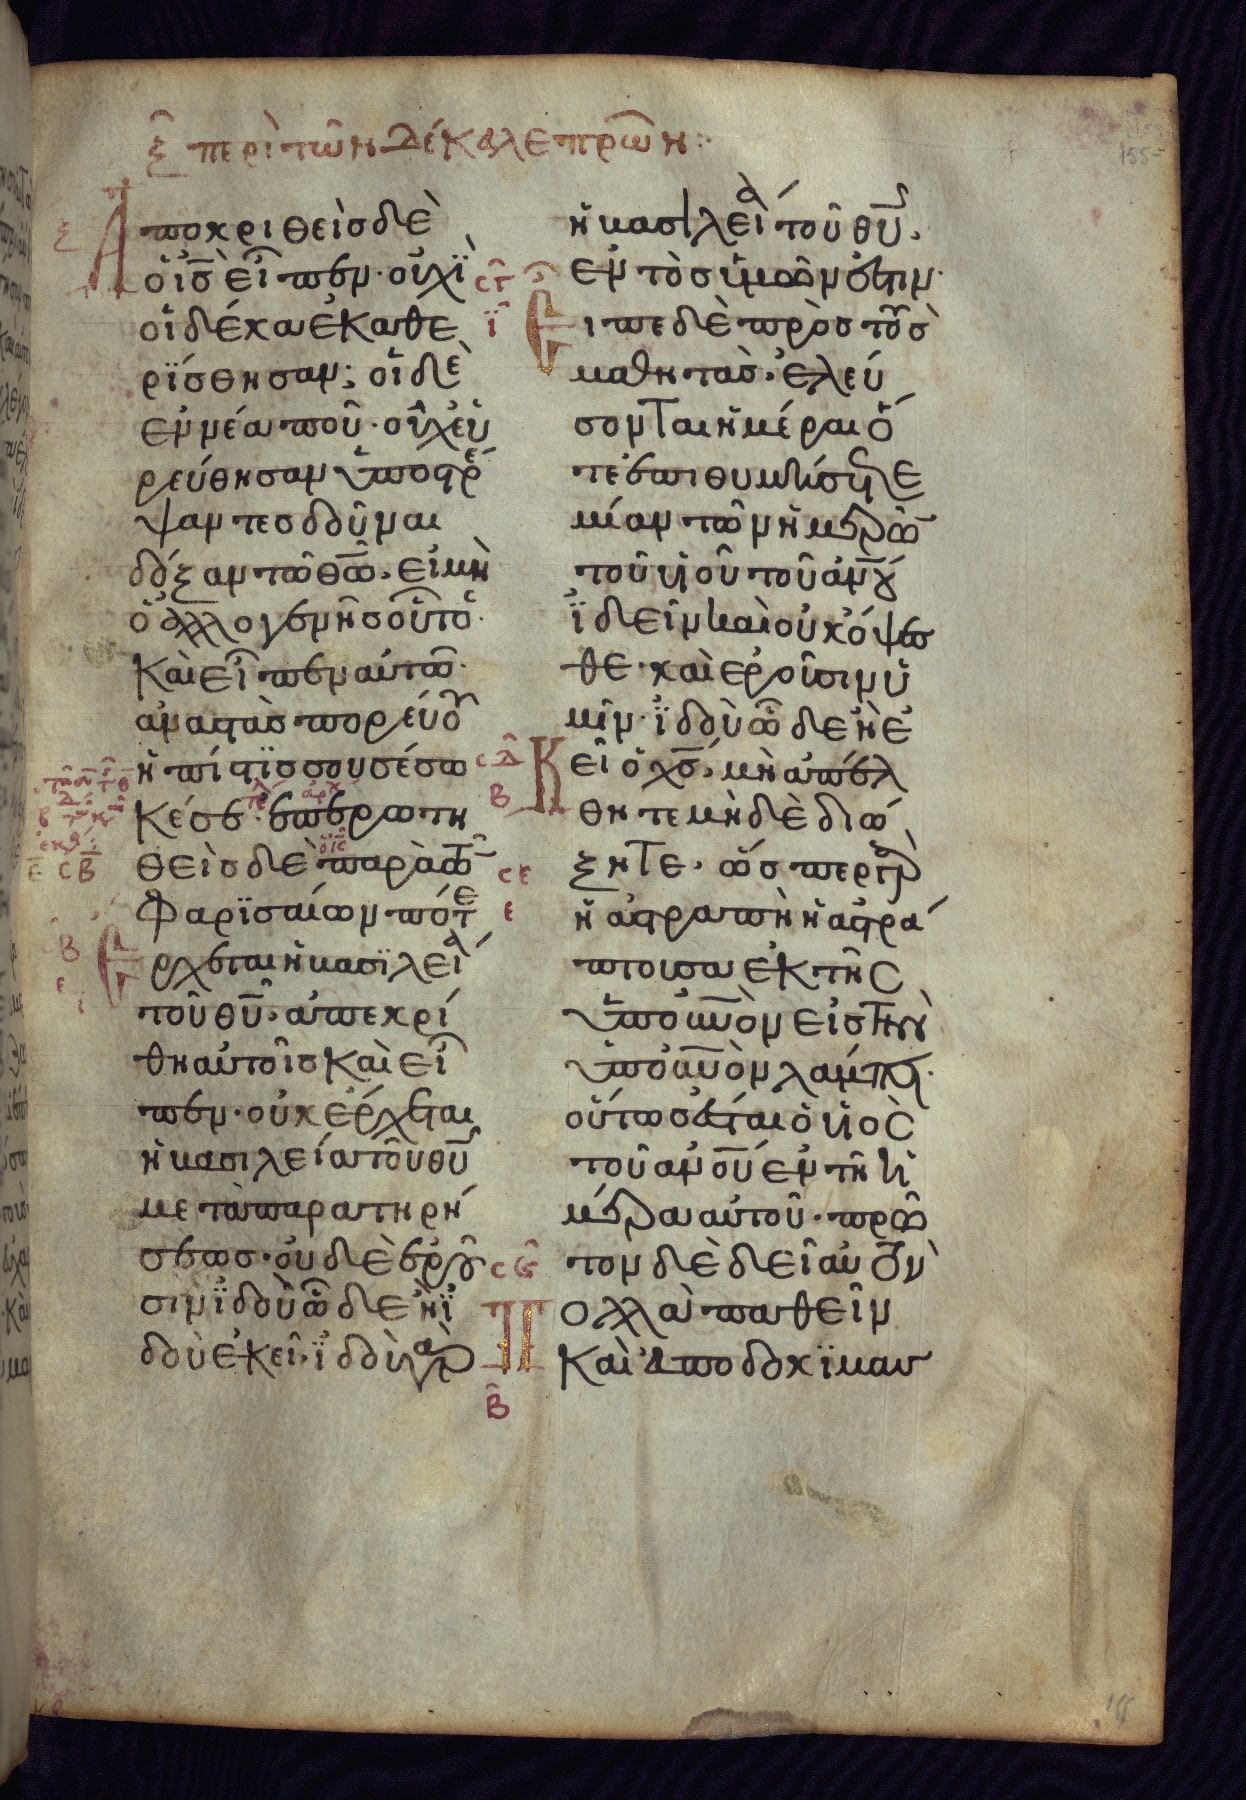 ξ περὶ τῶν δέκα λεπρῶν:
Ἀποκριθεὶς δὲ
ὁ ις̅ εἶπεν· οὐχὶ
οἱ δέκα ἐκαθε
ρίσθησαν; οἱ δὲ
ἐννέα ποῦ· οὐχ εὑ
ρέθησαν ὑποστρέ
ψαντες δοῦναι
δόξαν τῶ θω̅. εἰ μὴ
ὁ ἀλλογενὴς οὗτος·
καὶ εἶπεν αὐτῶ·
ἀναστὰς πορεύου
ἡ πίστις σου σέσω
κέ σε· ἐπερωτη
θεὶς δὲ παρὰ τῶν
Φαρισαίων πότε
ἔρχεται ἡ βασιλεία
τοῦ θυ̅. ἀπεκρί
θη αὐτοῖς καὶ εἶ
πεν· οὐκ ἔρχεται
ἡ βασιλεία τοῦ θυ̅
μετὰ παρατηρή
σεως· οὐδὲ ἐροῦ
σιν ἰδοὺ ὧδε ἢ ἰ
δοὺ ἐκεῖ· ἰδοὺ γὰρ
ἡ βασιλεία τοῦ θυ̅.
ἐντὸς ὑμῶν ἐστιν·
Εἶπε δὲ πρὸς τοὺς
μαθητάς· ἐλεύ
σονται ἡμέραι ὅ
τε ἐπιθυμήσητε
μίαν τῶν ἡμερῶν
τοῦ υἱοῦ τοῦ ἀνου̅
ἰδεῖν καὶ οὐκ ὄψεσ
θε· καὶ ἐροῦσιν ὑ
μῖν· ἰδοὺ ὧδε ἢ ἐ
κεῖ ὁ χς̅, μὴ ἀπέλ
θητε μὴ δὲ διώ
ξητε· ὥσπερ γὰρ
ἡ ἀστραπὴ ἡ ἀστρά
πτουσα ἐκ τῆς
ὑπ' ουνον εἰς τὴν
ὑπ' ουνον λάμπει·
οὕτως ἔσται ὁ υἱὸς
τοῦ ανου̅ ἐν τῆ ἡ
μέρα αὐτοῦ· πρῶ
τον δὲ δεῖ αὐτὸν
πολλὰ παθεῖν
καὶ ἀποδοκιμασ